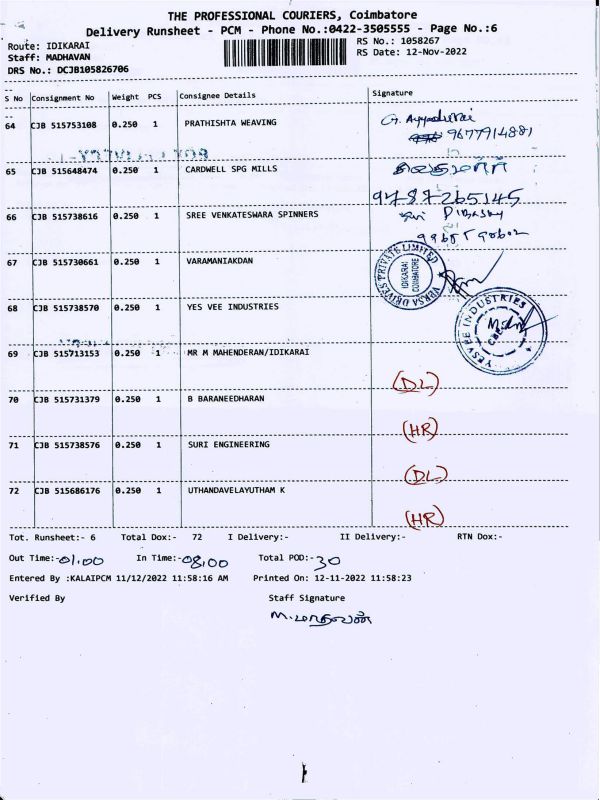 THE PROFESSIONAL COURIERS, Coimbatore
Delivery Runsheet - PCM - Phone No.:0422-3505555 - Page No.:6
Route: IDIKARAI
RS No.: 1058267
Staff: MADHAVAN
RS Date: 12-Nov-2022
DRS No.: DCJB105826706
S No Consignment No Weight PCS Consignee Details Signature
64 CJB 515753108 0.250 1 PRATHISHTA WEAVING
9677914881
65 CJB 515648474 0.250 1 CARDWELL SPG MILLS
9787265145
66 CJB 515738616 0.250 1 SREE VENKATESWARA SPINNERS
67 CJB 515730661 0.250 1 VARAMANIAKDAN
VERSA DRIVES PRIVATE LIMITED
IDIKARAI
COIMBATORE
68 CJB 515738570 0.250 1 YES VEE INDUSTRIES
YESVEE INDUSTRIES
69 CJB 515713153 0.250 1 MR M MAHENDERAN/IDIKARAI
(DL)
70 CJB 515731379 0.250 1 B BARANEEDHARAN
(HR)
71 CJB 515738576 0.250 1 SURI ENGINEERING
(DL)
72 CJB 515686176 0.250 1 UTHANDAVELAYUTHAM K
(HR)
Tot. Runsheet:- 6 Total Dox:- 72 I Delivery:- II Delivery:- RTN Dox:-
Out Time:-01.00 In Time:-08,00 Total POD:-30
Entered By :KALAIPCM 11/12/2022 11:58:16 AM Printed On: 12-11-2022 11:58:23
Verified By Staff Signature
M.மாதவன்